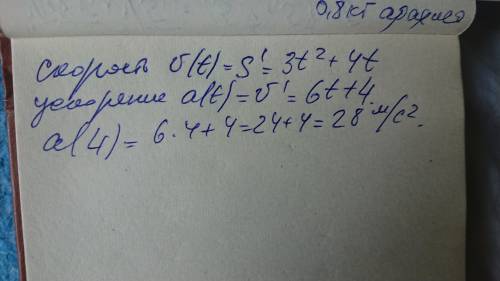 0,8кг арахиса
Скорость υ(t) = S' = 3t² + 4t
ускорение a(t) = υ' = 6t + 4
a(4) = 6·4 + 4 = 24 + 4 = 28 м/с².